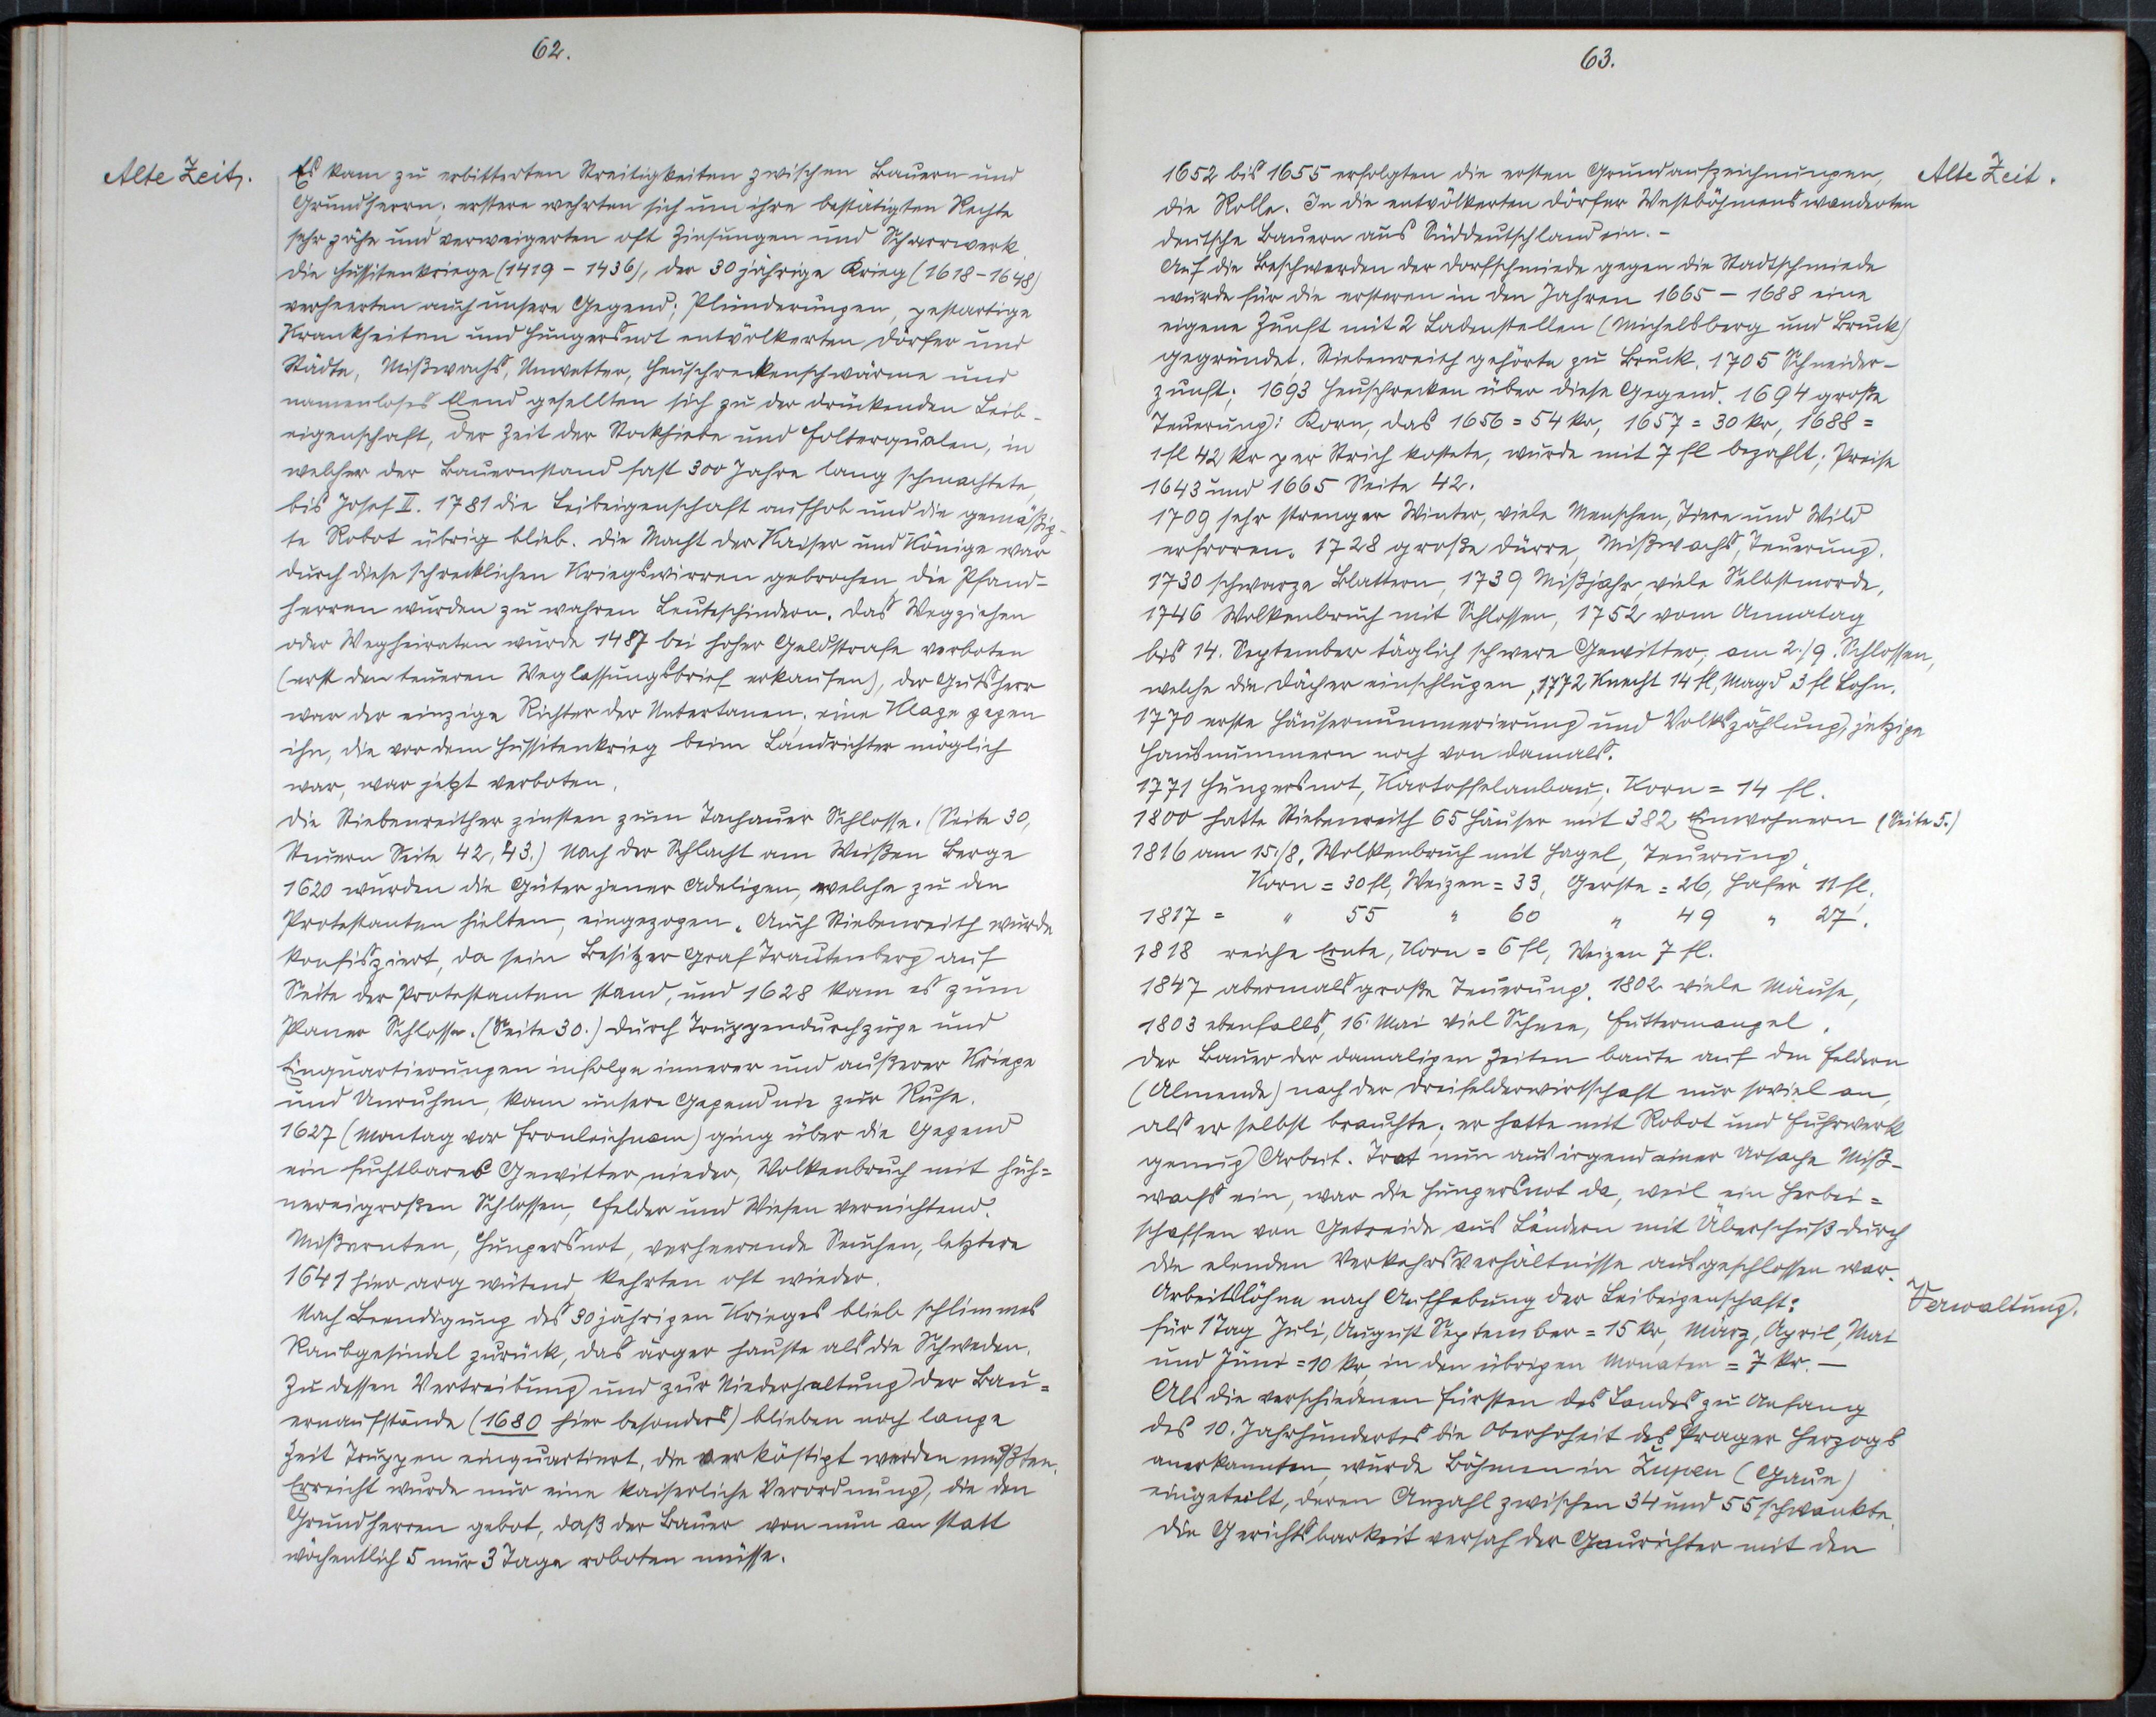 62.
Alte Zeit.
Es kam zu erbitterten Streitigkeiten zwischen Bauern und
Grundherrn; erstere wehrten sich um ihre bestätigten Rechte
sehr zähe und verweigerten oft Zinsungen und Scharwerk.
Die Hussitenkriege (1419 - 1436), der 30 jährige Krieg (1618 - 1648)
verheerten auch unsere Gegend; Plünderungen, pestartige
Krankheiten und Hungersnot entvölkerten Dörfer und
Städte, Mißwachs, Unwetter, Heuschreckenschwärme und
namenloses Elend gesellten sich zu der drückenden Leib-
eigenschaft, der Zeit der Stockhiebe und Folterqualen, in
welcher der Bauernstand fast 300 Jahre lang schmachtete,
bis Josef II. 1781 die Leibeigenschaft aufhob und die gemäßig-
te Robot übrig blieb. Die Macht der Kaiser und Könige war
durch diese schrecklichen Kriegswirren gebrochen, die Pfand=
herren wurden zu wahren Leuteschindern. Das Wegziehen
oder Wegheiraten wurde 1487 bei hoher Geldstrafe verboten
(erst den teueren Weglassungsbrief erkaufen), der Gutsherr
war der einzige Richter der Untertanen; eine Klage gegen
ihn, die vor dem Hussitenkrieg beim Landrichter möglich
war, war jetzt verboten.
Die Stiebenreither zinsten zum Tachauer Schlosse. (Seite 30,
Steuern Seite 42, 43.) Nach der Schlacht am Weißen Berge
1620 wurden die Güter jener Adeligen, welche zu den
Protestanten hielten, eingezogen. Auch Stiebenreith wurde
konfisziert, da sein Besitzer Graf Trautenberg auf
Seite der Protestanten stand, und 1628 kam es zum
Planer Schlosse. (Seite 30.) Durch Truppendurchzüge und
Einquartierungen infolge innerer und äußerer Kriege
und Unruhen, kam unsere Gegend nie zur Ruhe.
1627 (Montag vor Fronleichnam) ging über die Gegend
ein fuchtbares Gewitter nieder, Wolkenbruch mit hüh=
nereigroßen Schlossen, Felder und Wiesen vernichtend.
Mißernten, Hungersnot, verheerende Seuchen, letztere
1641 hier arg wütend, kehrten oft wieder.
Nach Beendigung des 30 jährigen Krieges blieb schlimmes
Raubgesindel zurück, das ärger hauste als die Schweden.
Zu dessen Vertreibung und zur Niederhaltung der Bau=
ernaufstände (1680 hier besonders) blieben noch lange
Zeit Truppen einquartiert, die verköstigt werden mußten.
Erreicht wurde nur eine kaiserliche Verordnung, die den
Grundherren gebot, daß der Bauer von nun an statt
wöchentlich 5 nur 3 Tage roboten müsse.
63.
Alte Zeit.
1652 bis 1655 erfolgten die ersten Grundaufzeichnungen,
die Rolle. In die entvölkerten Dörfer Westböhmens wanderten
deutsche Bauern aus Süddeutschland ein. -
Auf die Beschwerden der Dorfschmiede gegen die Stadtschmiede
wurde für die ersteren in den Jahren 1665 - 1688 eine
eigene Zunft mit 2 Ladenstellen (Michelsberg und Bruck)
gegründet. Stiebenreith gehörte zu Bruck. 1705 Schneider-
zunft; 1693 Heuschrecken über diese Gegend. 1694 große
Teuerung: Korn, das 1656 = 54 kr, 1657 = 30 kr, 1688 =
1 fl 42 kr per Strich kostete, wurde mit 7 fl bezahlt; Preise
1643 und 1665 Seite 42.
1709 sehr strenger Winter, viele Menschen, Tiere und Wild
erfroren. 1728 große Dürre, Mißwachs, Teuerung.
1730 schwarze Blattern, 1739 Mißjahr, viele Selbstmorde,
1746 Wolkenbruch mit Schlossen, 1752 vom Annatag
bis 14. September täglich schwere Gewitter, am 2./9. Schlossen,
welche die Dächer einschlugen, 1772 Knecht 14 fl, Magd 3 fl Lohn.
1770 erste Häusernummerierung und Volkszählung, jetzige
Hausnummern noch von damals.
1771 Hungersnot, Kartoffelanbau, Korn = 14 fl.
1800 hatte Stiebenreith 65 Häuser mit 382 Einwohnern (Seite 5.)
1816 am 15./8. Wolkenbruch mit Hagel, Teuerung,
Korn = 30 fl, Weizen = 33, Gerste = 26, Hafer 11 fl.
1817 = " 55 " 60 " 49 " 27.
1818 reiche Ernte, Korn = 6 fl, Weizen 7 fl.
1847 abermals große Teuerung. 1802 viele Mäuse,
1803 ebenfalls, 16. Mai viel Schnee, Futtermangel.
Der Bauer der damaligen Zeiten baute auf den Feldern
(Almende) nach der Dreifelderwirtschaft nur soviel an,
als er selbst brauchte; er hatte mit Robot und Fuhrwerk
genug Arbeit. Trat nun aus irgend einer Ursache Miß-
wachs ein, war die Hungersnot da, weil ein Herbei=
schaffen von Getreide aus Ländern mit Überschuß durch
die elenden Verkehrsverhältnisse ausgeschlossen war.
Arbeitslöhne nach Aufhebung der Leibeigenschaft:
für 1 Tag Juli, August September = 15 kr, März, April, Mai
und Juni = 10 kr, in den übrigen Monaten = 7 kr. -
Verwaltung.
Als die verschiedenen Fürsten des Landes zu Anfang
des 10. Jahrhundertes die Oberhoheit des Prager Herzogs
anerkannten, wurde Böhmen in Zupen (Gaue)
eingeteilt, deren Anzahl zwischen 34 und 55 schwankte.
Die Gerichtsbarkeit versah der Gaurichter mit den